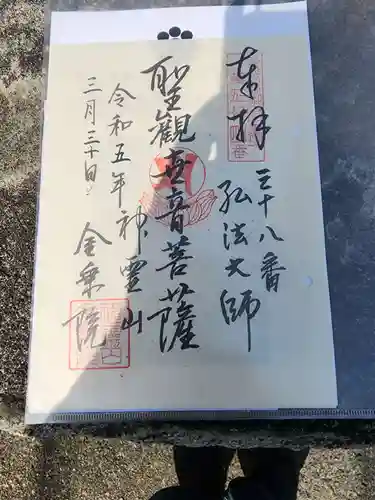 奉拝
三十八番
弘法大師
聖観世音菩薩
神霊山
令和五年
三月三十日
金乗院